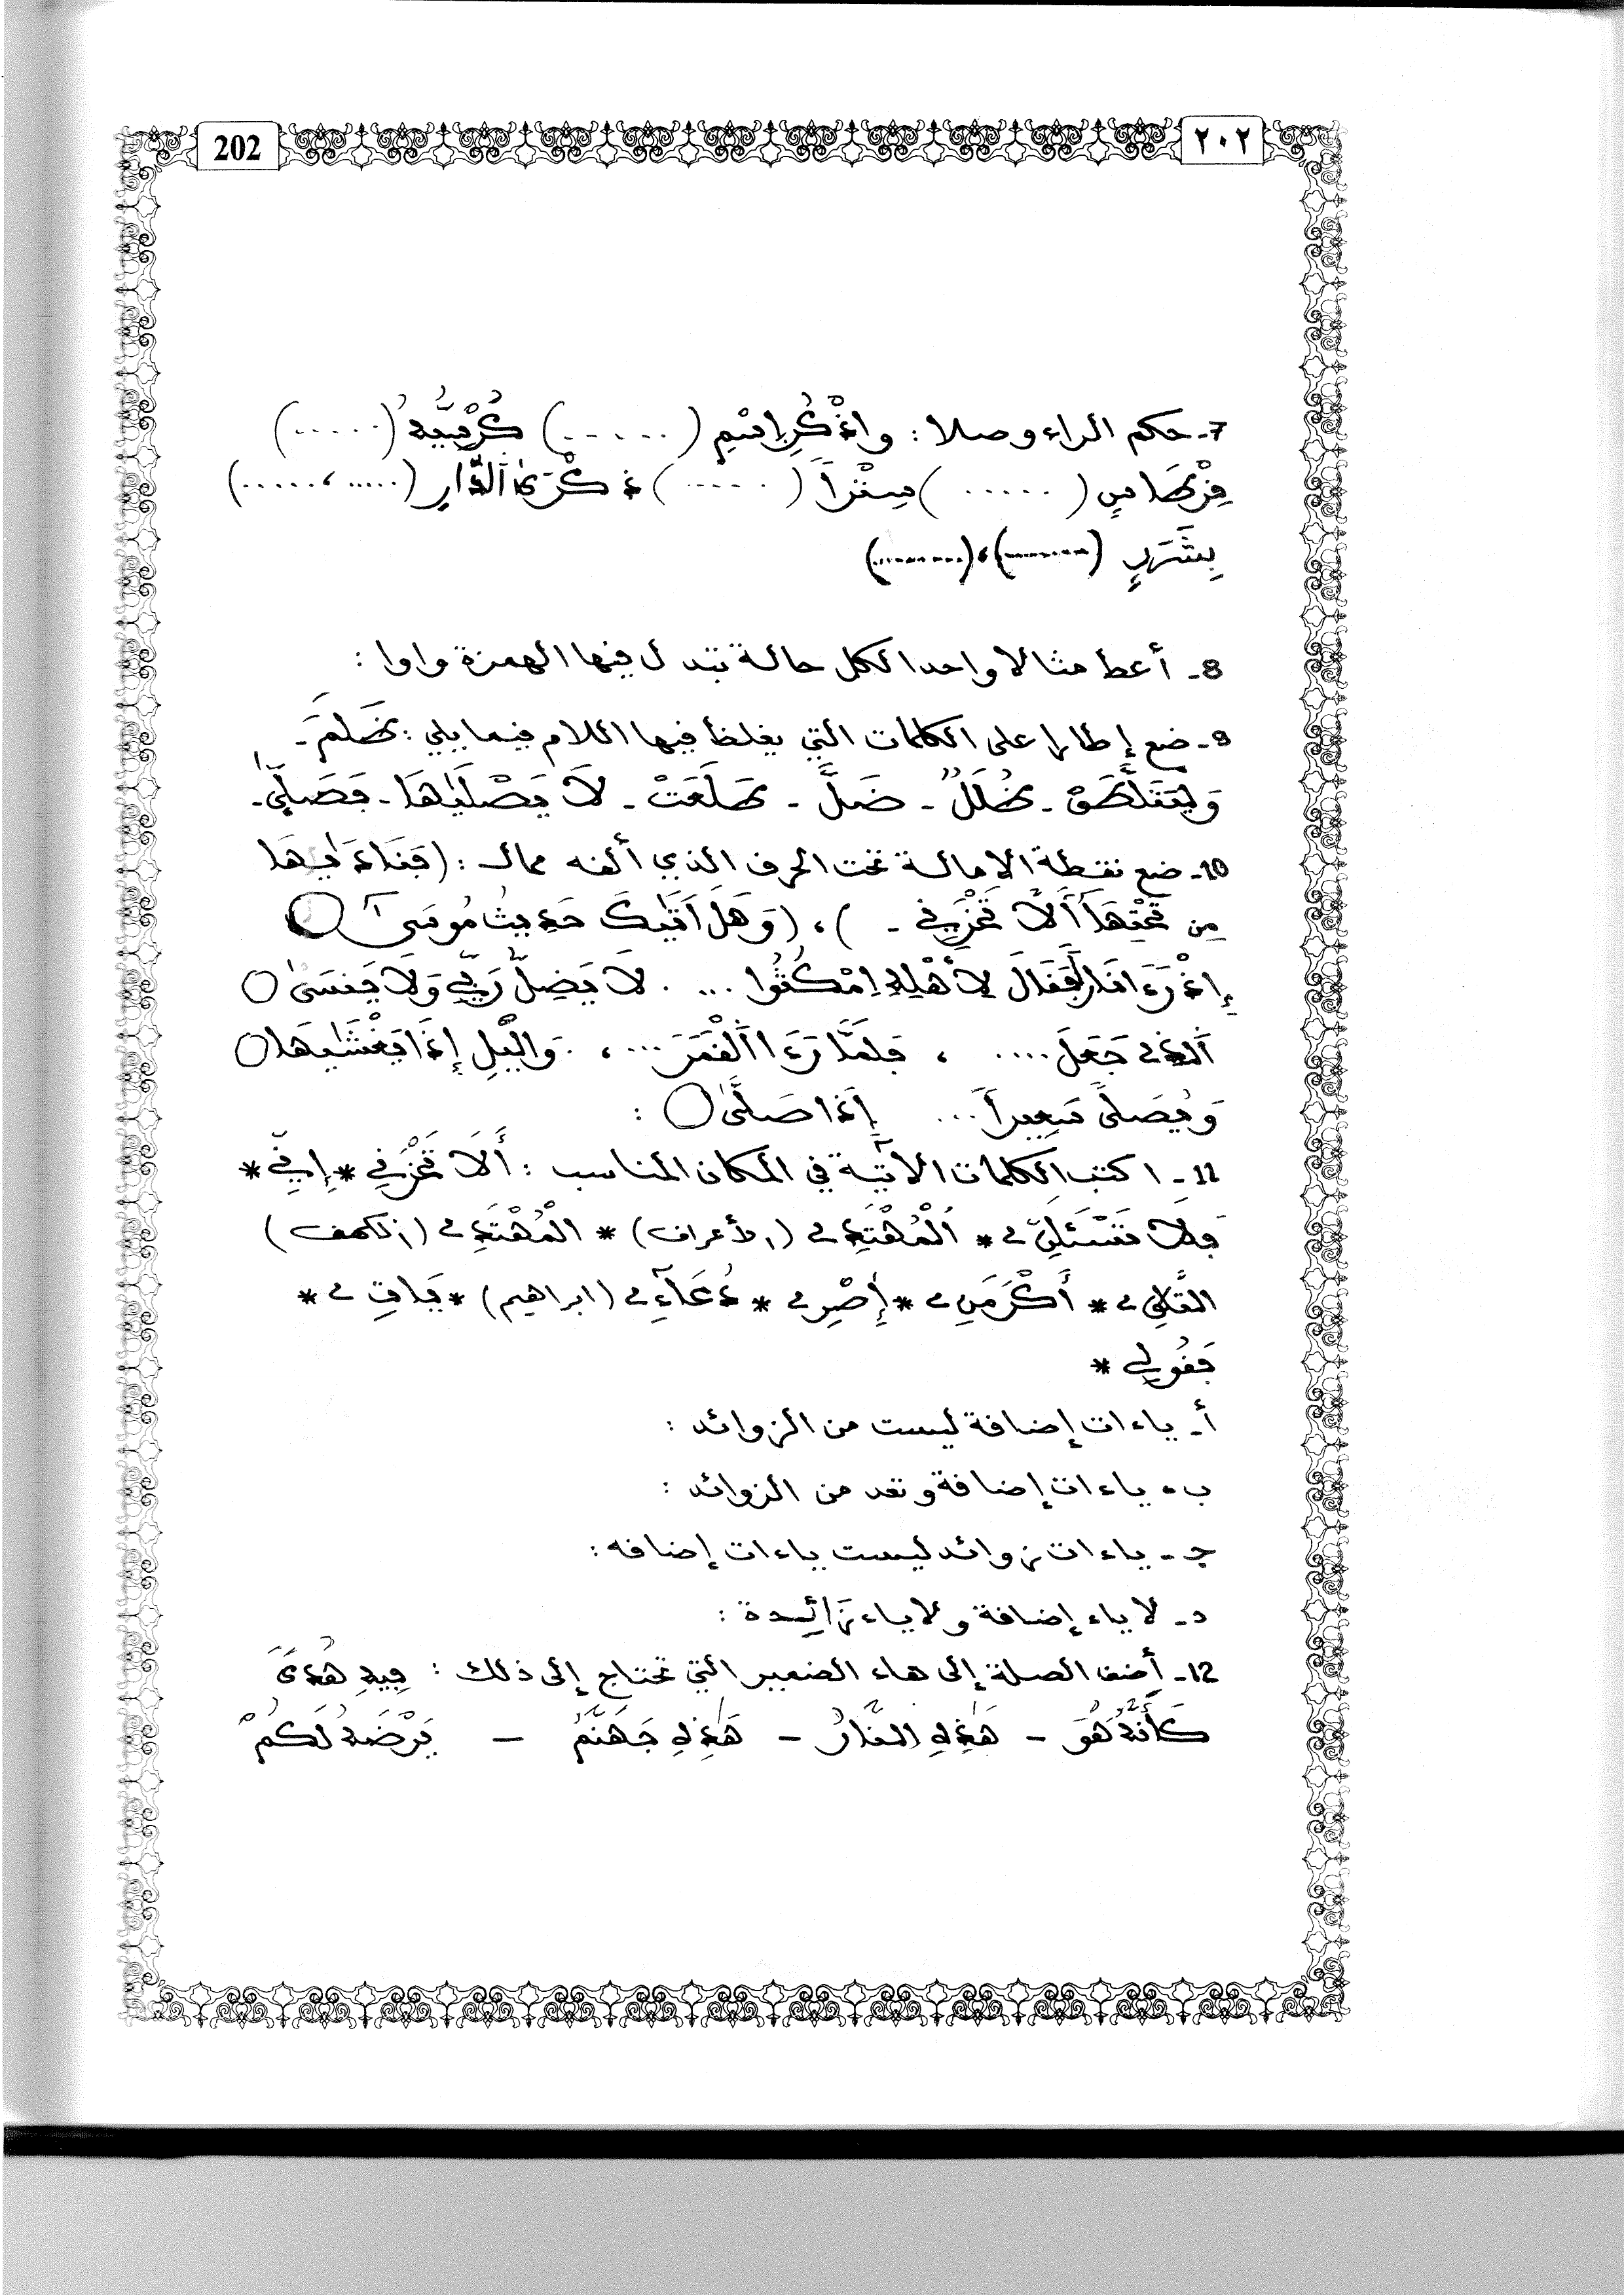 202
٢٠٢
7- حكم الراء وصلا : واذْكُرِ اِسْمِ (......) كُرْسِيُّهُ (......)
قِرْطَاسٍ (......) سِتْراً (......) ذِكْرَى اَلدّارِ (......،......)
بِشَرَرٍ (.........)،(.........)
8- أعط مثالا واحدا لكل حالة تبدل فيها الهمزة واوا :
9- ضع إطارا على الكلمات التي يغلظ فيها اللام فيما يلي : ظَلَمَ -
وَلْيَتَلَطَّفْ - ظُلَلٌ - ضَلَّ - طَلَعَتْ - لاَ يَصْلَيٰهَا - فَصَلّىٰ -
10- ضع نقطة الإمالة تحت الحرف الذي ألفه ممال : (فَنَادَيٰهَا
مِن تَحْتِهَا أَلاَّ تَحْزَنِي - )، (وَهَلْ أَتَيٰكَ حَدِيثُ مُوسَىٰ
إِذْ رَءَا نَاراً فَقَالَ لِأَهْلِهِ اِمْكُثُوا ... . لاَ يَضِلُّ رَبِّي وَلاَ يَنسَىٰ
اَلذِي جَعَلَ .... ، فَلَمَّا رَءَا اَلْقَمَرَ ... ، . وَاليْلِ إِذَا يَغْشَيٰهَا
وَيُصَلَّىٰ سَعِيراً ... إِذَا صَلَّىٰ :
11- اكتب الكلمات الآتية في المكان المناسب : أَلاَّ تَحْزَنِي * إِنِّي *
فَلاَ تَسْـَٔلَنِّ ے * اَلْمُهْتَدِ ے (الأعراف) * الْمُهْتَدِ ے (الكهف)
التَّلاَقِ ے * أَكْرَمَنِ ے * إِصْرِ ے * دُعَآءِ ے (ابراهيم) * يَاتِ ے *
فَقُولِي *
أ- ياءات إضافة ليست من الزوائد :
ب- ياءات إضافة وتعد من الزوائد :
ج- ياءات زوائد ليست ياءات إضافه :
د- لا ياء إضافة ولا ياء زَائِدة :
12- أضف الصلة إلى هاء الضمير التي تحتاج إلى ذلك : فِيهِ هُدىً
كَأَنَّهُ هُوَ - هَذِهِ النَّارُ - هَذِهِ جَهَنَّمُ - يَرْضَهُ لَكُمْ